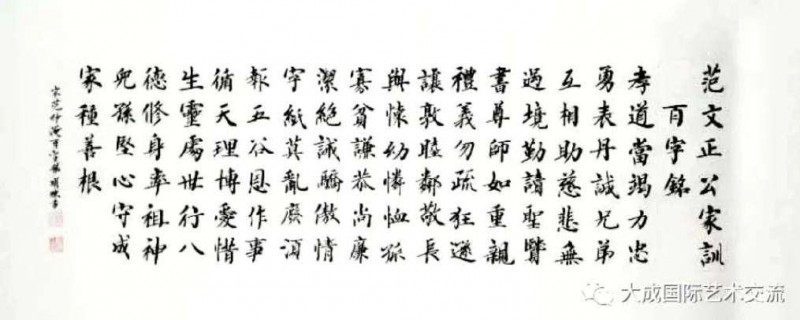 范文正公家訓
百字銘
孝道當竭力忠
勇表丹誠兄弟
互相助慈悲無
過境勤讀聖賢
書尊師如重親
禮義勿疏狂遜
讓敦睦鄰敬長
與懷幼憐恤孤
寡貧謙恭尚廉
潔絕誡驕傲情
字紙莫亂廢湏
報五谷恩作事
循天理博愛惜
生靈處世行八
德修身率祖神
兒孫堅心守成
家種善根
宋范仲淹百字銘
大成国际艺术交流